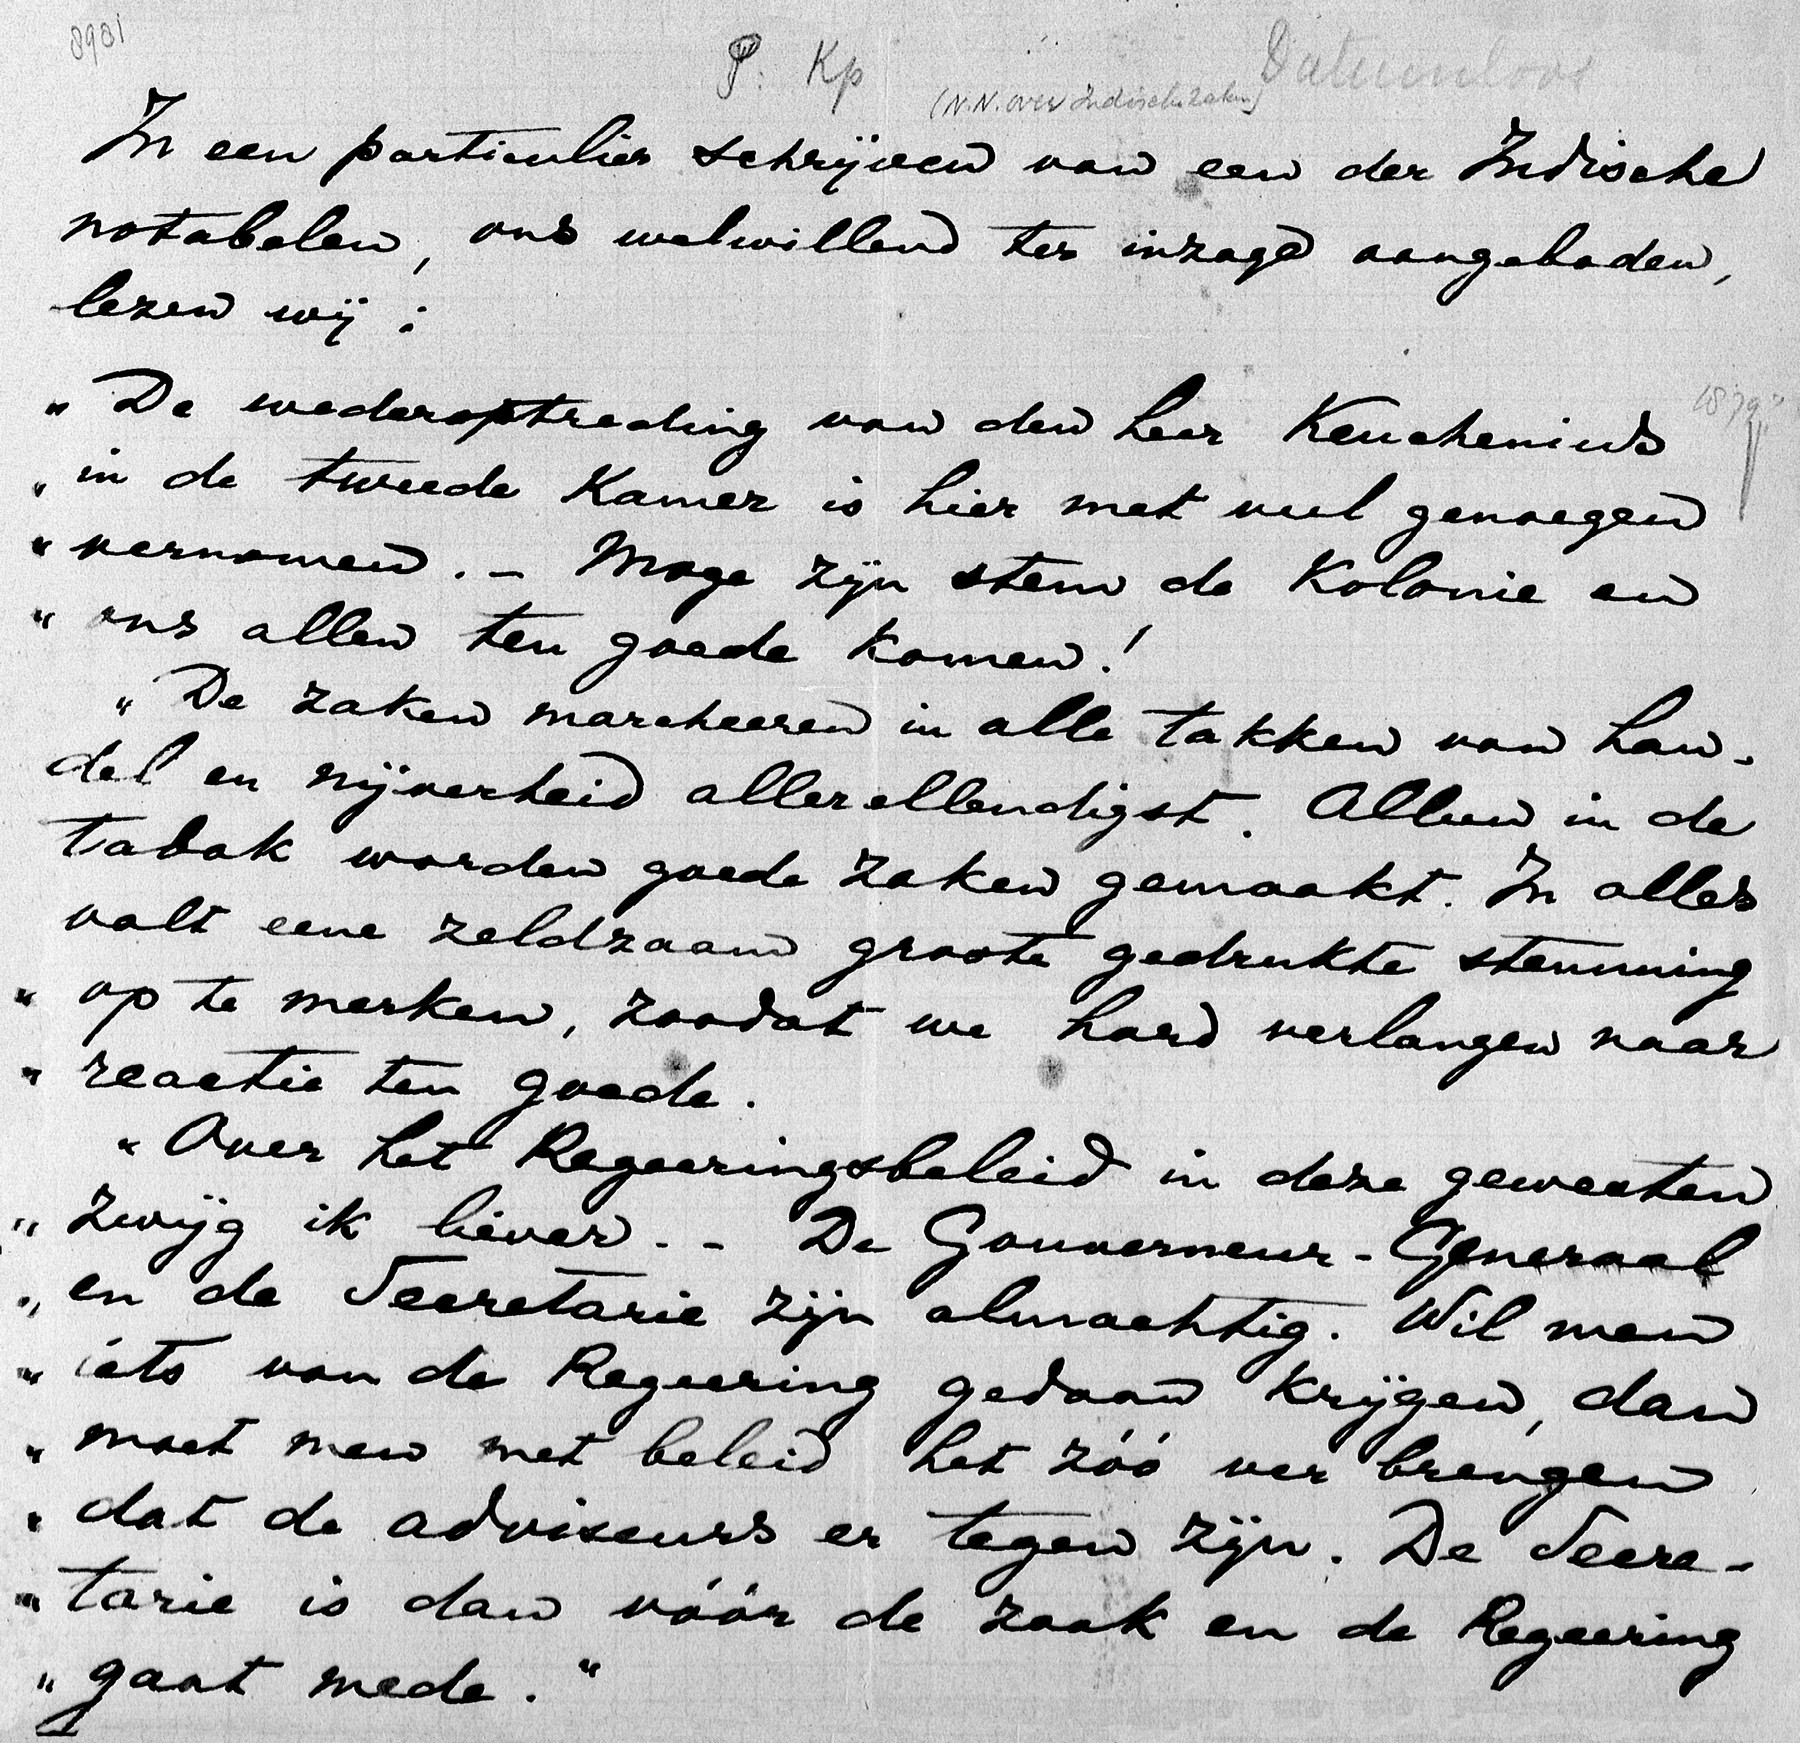 8981
P: Kp
Datumloos
(N.N. over Indische zaken)
In een particulier schrijven van een der Indische
notabelen, ons welwillend ter inzage aangeboden,
lezen wij:
1879?
„De wederoptreding van den heer Keuchenius
„in de tweede Kamer is hier met veel genoegen
„vernomen. – Moge zijn stem de Kolonie en
„ons allen ten goede komen!
„De zaken marcheeren in alle takken van han-
del en nijverheid allerellendigst. Alleen in de
tabak worden goede zaken gemaakt. In alles
valt eene zeldzaam groote gedrukte stemming
„op te merken, zoodat we hard verlangen naar
„reactie ten goede.
„Over het Regeeringsbeleid in deze gewesten
„zwijg ik liever. – De Gouverneur-Generaal
„en de Secretarie zijn almachtig. Wil men
„iets van de Regeering gedaan krijgen, dan
„moet men met beleid het zóó ver brengen
„dat de adviseurs er tegen zijn. De Secre-
„tarie is dan vóór de zaak en de Regeering
„gaat mede."